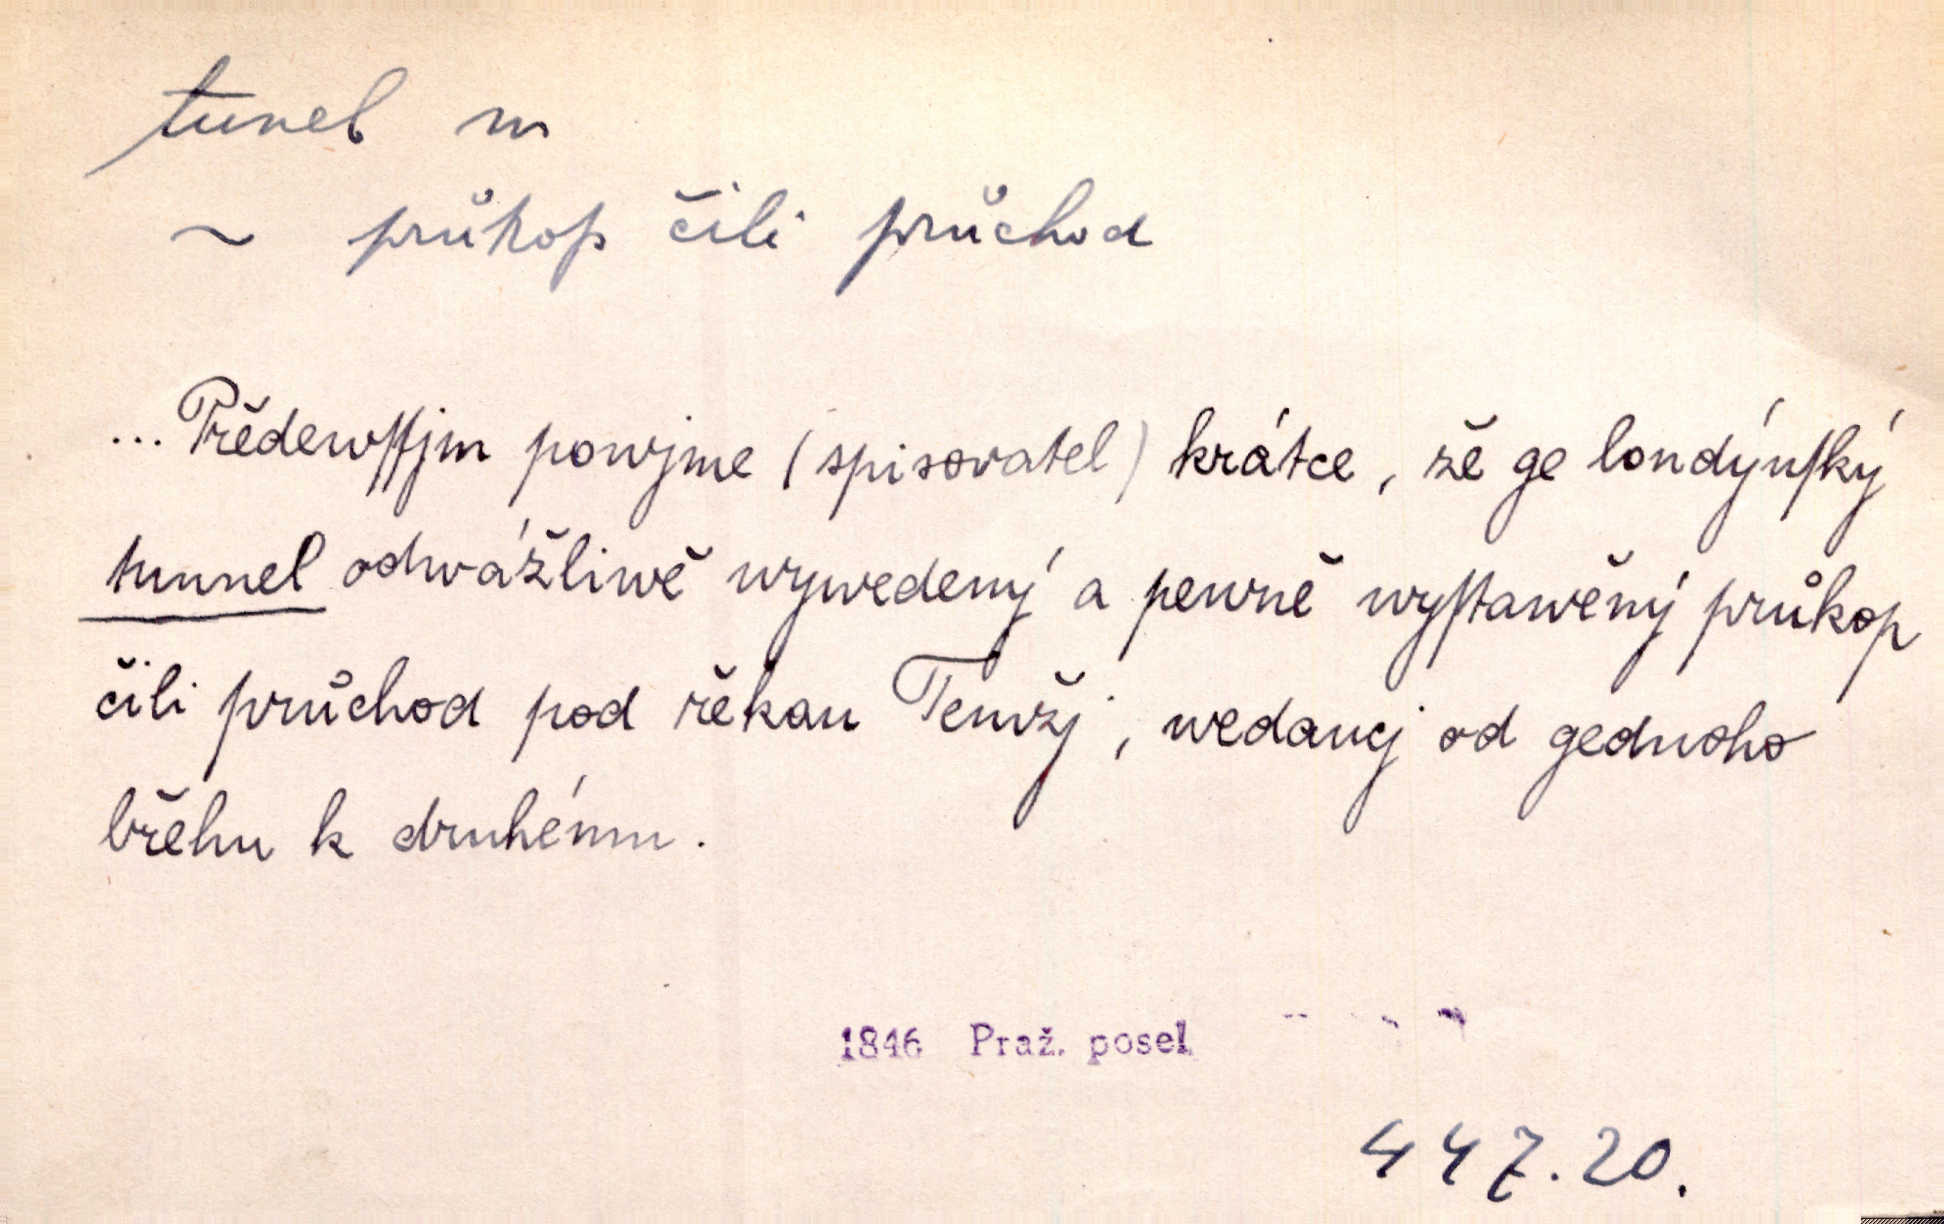 tunel m
~ průkop čili průchod
... Předewſſjm powjme (spisovatel) krátce, že ge londýnſký
tunnel odwážliwě wywedený a pewně wyſtawěný průkop
čili průchod pod řekau Temžj, wedaucj od gednoho
břehu k druhému.
1846 Praž. posel
447.20.